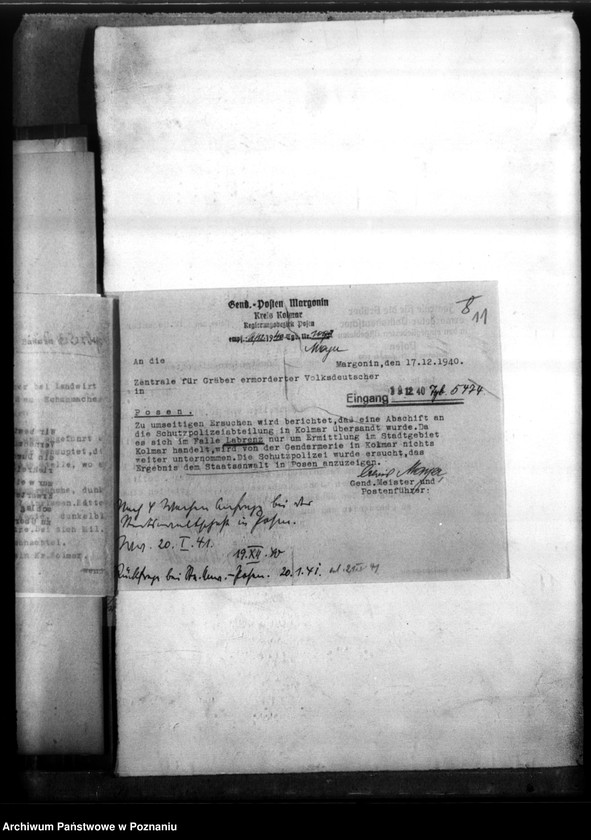 8
11
Gend.-Posten Margonin
Kreis Kolmar
Regierungsbezirk Posen
Margonin,den 17.12.1940.
An die
Zentrale für Gräber ermordeter Volksdeutscher
in
Eingang 19.12.40 Tgb. 5474
Posen.
Zu umseitigen Ersuchen wird berichtet,daß eine Abschift an
die Schutzpolizeiabteilung in Kolmar übersandt wurde.Da
es sich im Falle Labrenz nur um Ermittlung im Stadtgebiet
Kolmar handelt,wird von der Gendarmerie in Kolmar nichts
weiter unternommen.Die Schutzpolizei wurde ersucht,das
Ergebnis dem Staatsanwalt in Posen anzuzeigen.
Gend.Meister und
Postenführer:
Nach 4 Wochen Anfrage bei der
Staatsanwaltschaft in Posen.
20. I. 41.
19.XII.40
Rückfrage bei
Posen. 20.1.41.
Archiwum Państwowe w Poznaniu